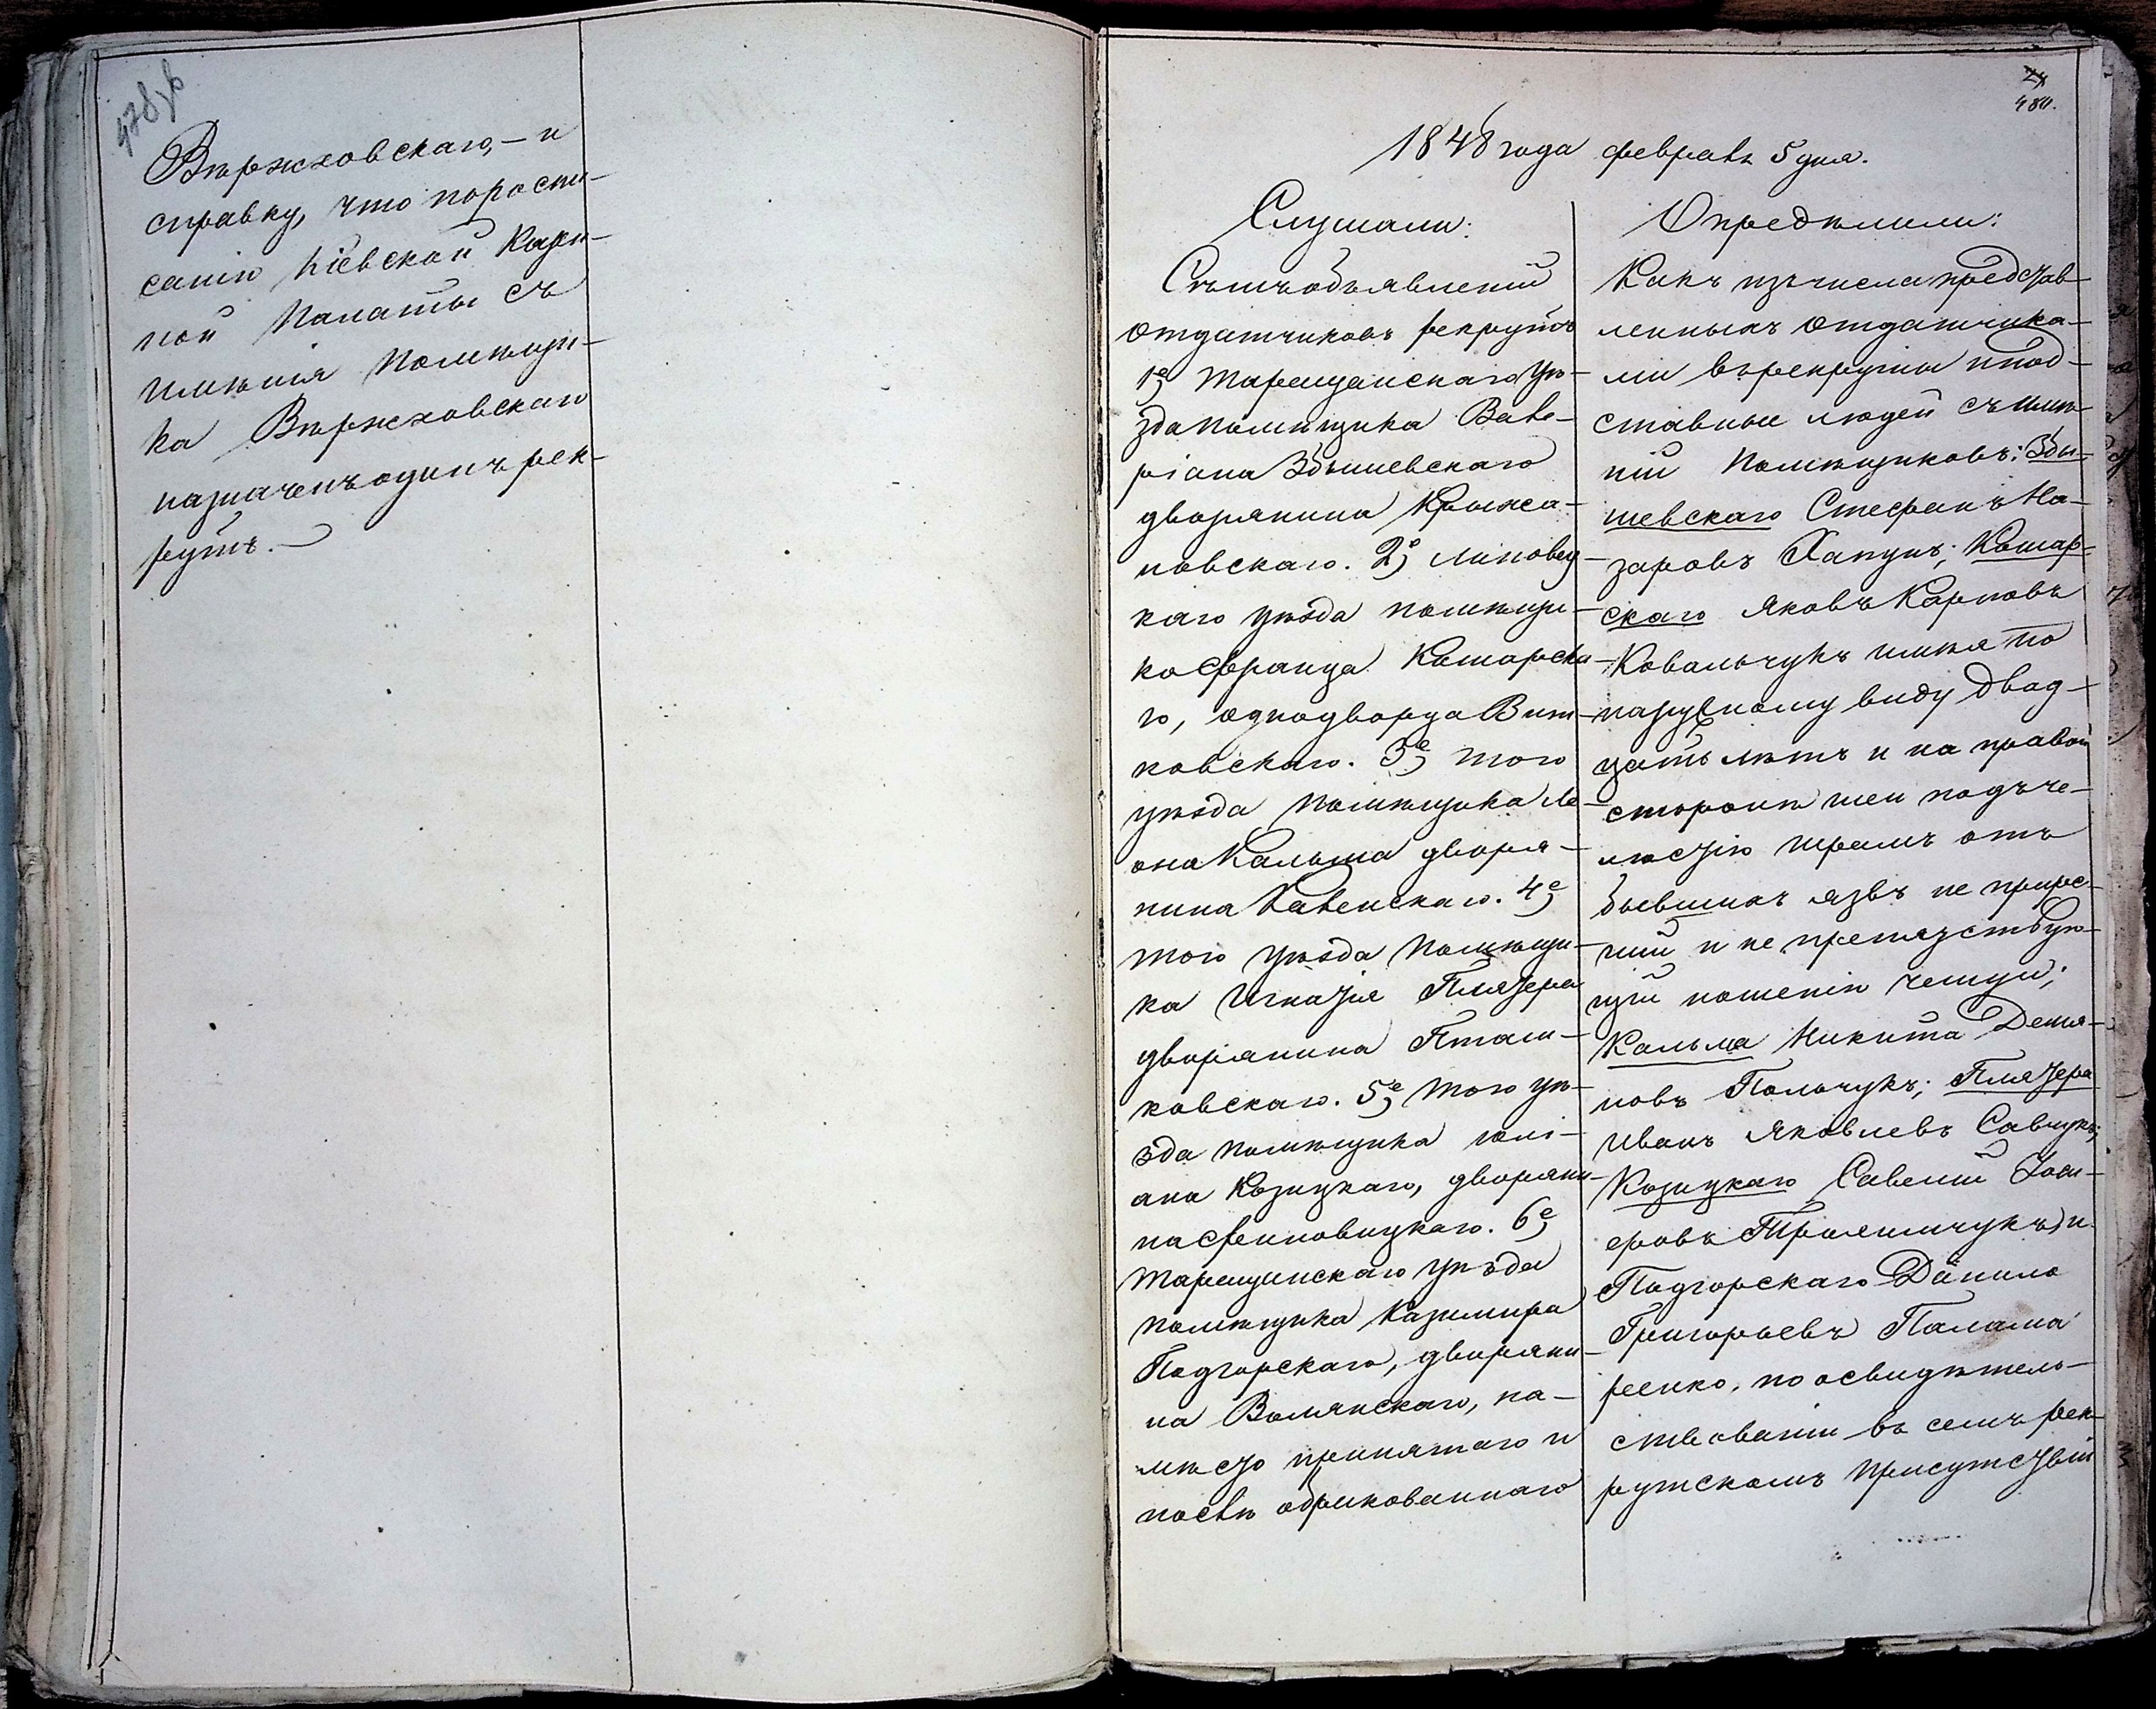 478 об
Вержховскаго, — и
справку, что по роспи-
санію Кіевской Казен-
ной Палаты съ
имѣнія Помѣщи-
ка Вержховскаго
назначенъ одинъ рек-
рутъ. —
480.
1848 года февраля 5 дня.
Слушали:
Съ объявленій
отдатчиковъ рекрутъ
1е, Таращанскаго уѣ-
зда помѣщика Вале-
ріана Збышевскаго
дворянина Крыжа-
новскаго. 2е, Липовец-
каго уѣзда помѣщи-
ка Франца Комарска-
го, однодворца Вит-
ковскаго. 3е, того
уѣзда помѣщика Ле-
она Кальма дворя-
нина 4е,
того уѣзда Помѣщи-
ка Игнатія Плятера
дворянина Пташ-
ковскаго. 5е, того уѣ-
зда помѣщика Юлі-
ана Козицкаго, дворяни-
на 6е,
Таращанскаго уѣзда
помѣщика Казимира
Подгорскаго, дворяни-
на Волянскаго, на-
мѣсто принятаго и
послѣ обракованнаго
Опредѣлили:
Какъ изъ числа представ-
ленныхъ отдатчика-
ми въ рекруты и под-
ставные людей съ имѣ-
ній Помѣщиковъ: Збы-
шевскаго Стефанъ На-
заровъ Хапунъ; Комар-
скаго Яковъ Карповъ
Ковальчукъ имѣя по
наружному виду двад-
цать лѣтъ и на правой
сторонѣ шеи подъ че-
люстію шрамъ отъ
бывшихъ язвъ не прирос-
шій и не препятствую-
щій ношенію чешуи;
Кальма Никита Демья-
новъ Польчукъ; Плятера
Иванъ Яковлевъ Савчукъ;
Козицкаго Савелій
еровъ и
Подгорскаго Данило
Григорьевъ Палама-
ренко, по освидѣтель-
ствованіи въ семъ рек-
рутскомъ Присутствіи